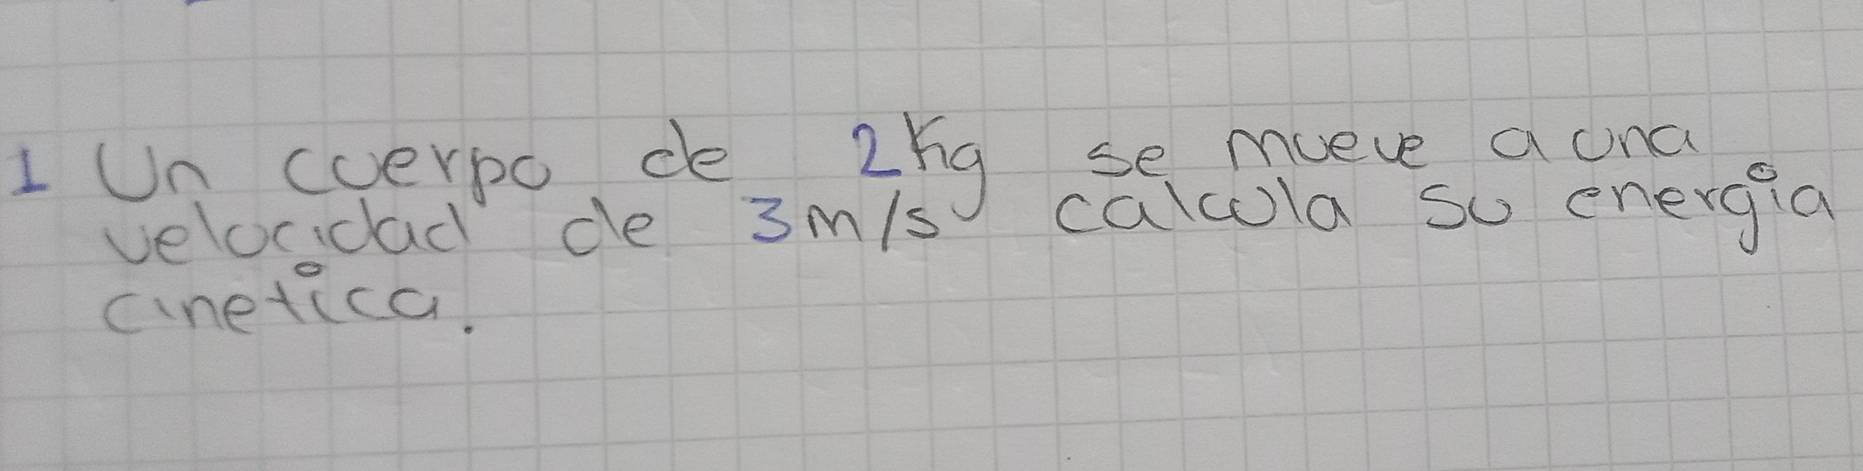 1 Un cuerpo de 2Kg se mueve a una
velocidad de 3m/s calcula su energia
cinetica.